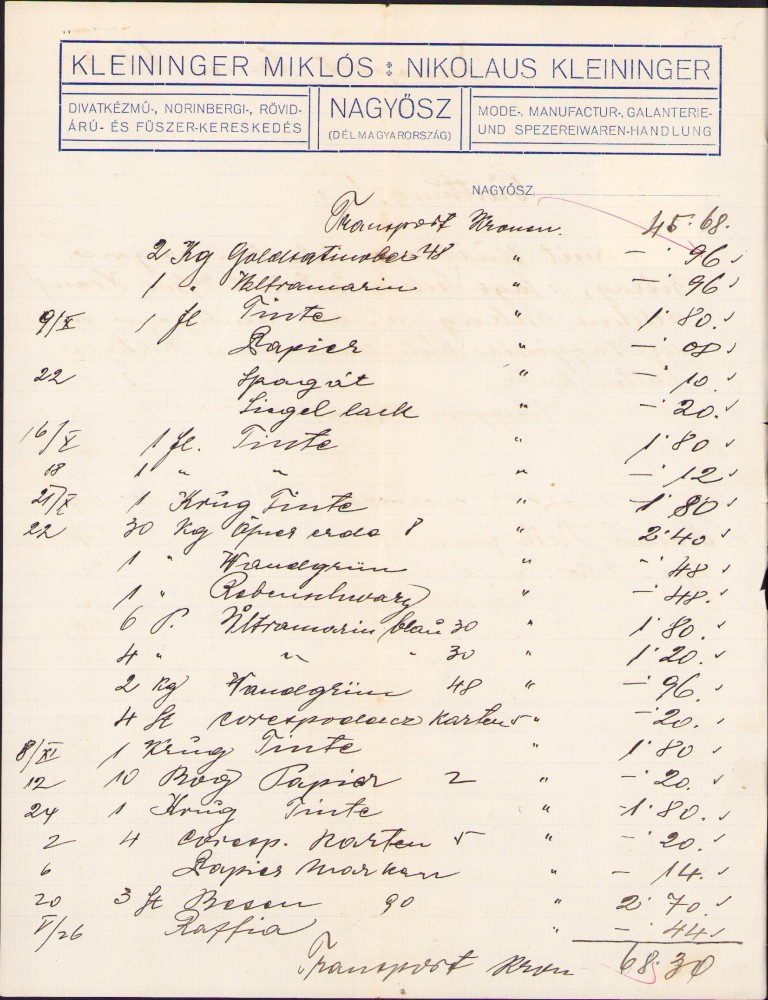 KLEININGER MIKLÓS : NIKOLAUS KLEININGER
DIVATKÉZMŰ-, NORINBERGI-, RÖVID-
ÁRÚ- ÉS FŰSZER-KERESKEDÉS
NAGYŐSZ
(DÉLMAGYARORSZÁG)
MODE-, MANUFACTUR-, GALANTERIE-
UND SPEZEREIWAREN-HANDLUNG
NAGYŐSZ,
Transport Kronen. 45·68.
2 Kg Goldsatinober 48 " — · 96
1 " Ultramarin " — · 96
9/X 1 fl Tinte " 1·80.
Papier " — · 08
22 Spagát " — · 10.
Siegel lack " — · 20.
16/X 1 fl. Tinte " 1·80
18 1 " " " — · 12
21/X 1 Krug Tinte " 1·80
22 30 Kg erde 8 " 2·40
1 " Wandgrün " — · 48
1 " Rebenschwarz " — · 48.
6 P. Ultramarin blau 30 " 1·80.
4 " " " 30 " 1·20.
2 Kg Wandgrün 48 " — · 96.
4 St Karten 5 " — · 20.
8/XI 1 Krug Tinte " 1·80
12 10 Bog Papier 2 " — · 20.
24 1 Krug Tinte " 1·80.
2 4 coresp. Karten 5 " — · 20.
6 Papier Marken " — · 14.
20 3 St Besen 90 2·70.
V/26 Raffia " — · 44
Transport Kron 68·30